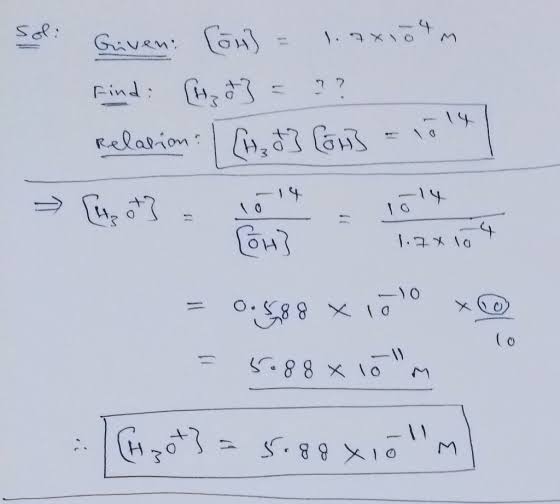 Sol: Given: [OH⁻] = 1.7×10⁻⁴ M
Find: [H₃O⁺] = ??
Relation: [H₃O⁺] [OH⁻] = 10⁻¹⁴
⇒ [H₃O⁺] = 10⁻¹⁴ / [OH⁻] = 10⁻¹⁴ / 1.7×10⁻⁴
= 0.588 × 10⁻¹⁰ × 10 / 10
= 5.88 × 10⁻¹¹ M
∴ [H₃O⁺] = 5.88 × 10⁻¹¹ M